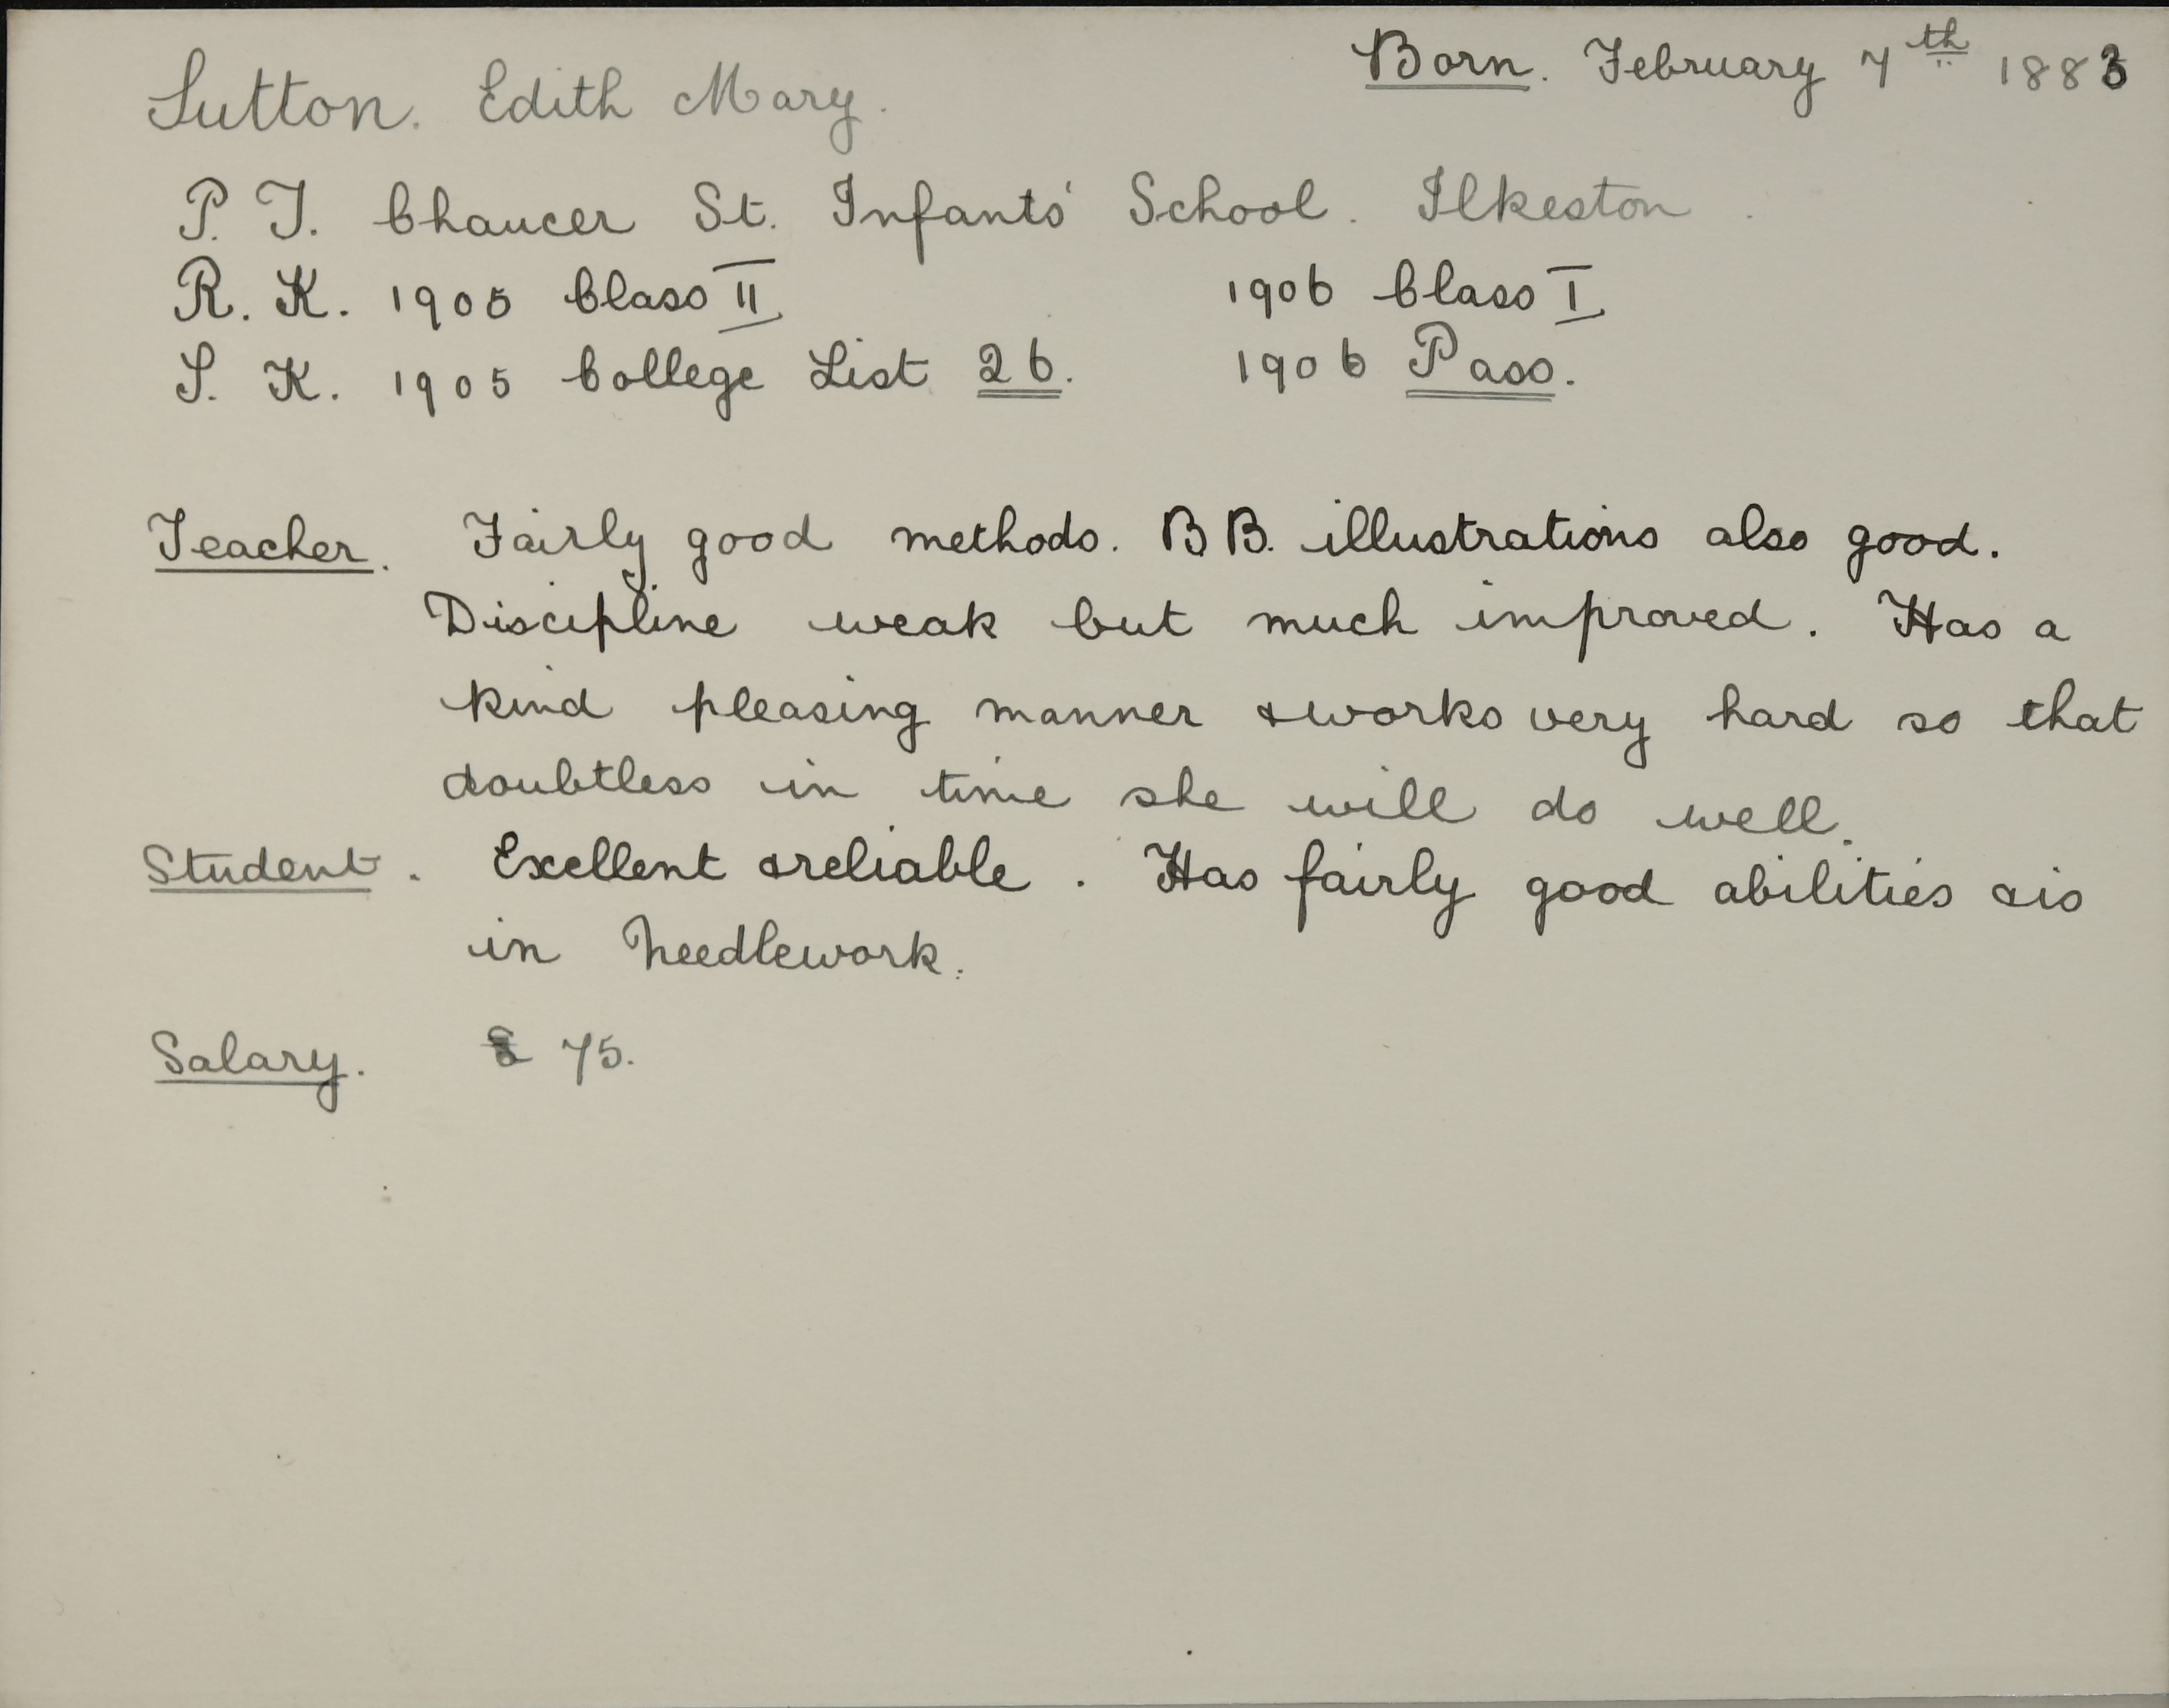 Sutton. Edith Mary. Born. February 7th 1883
P. T. Chaucer St. Infants' School. Ilkeston
R. K. 1905 Class II 1906 Class I
S. K. 1905 College List 26. 1906 Pass.
Teacher. Fairly good methods. BB. illustrations also good.
Discipline weak but much improved. Has a
kind pleasing manner & works very hard so that
doubtless in time she will do well.
Student. Exellent & reliable. Has fairly good abilities & is
in Needlework.
Salary. £ 75.